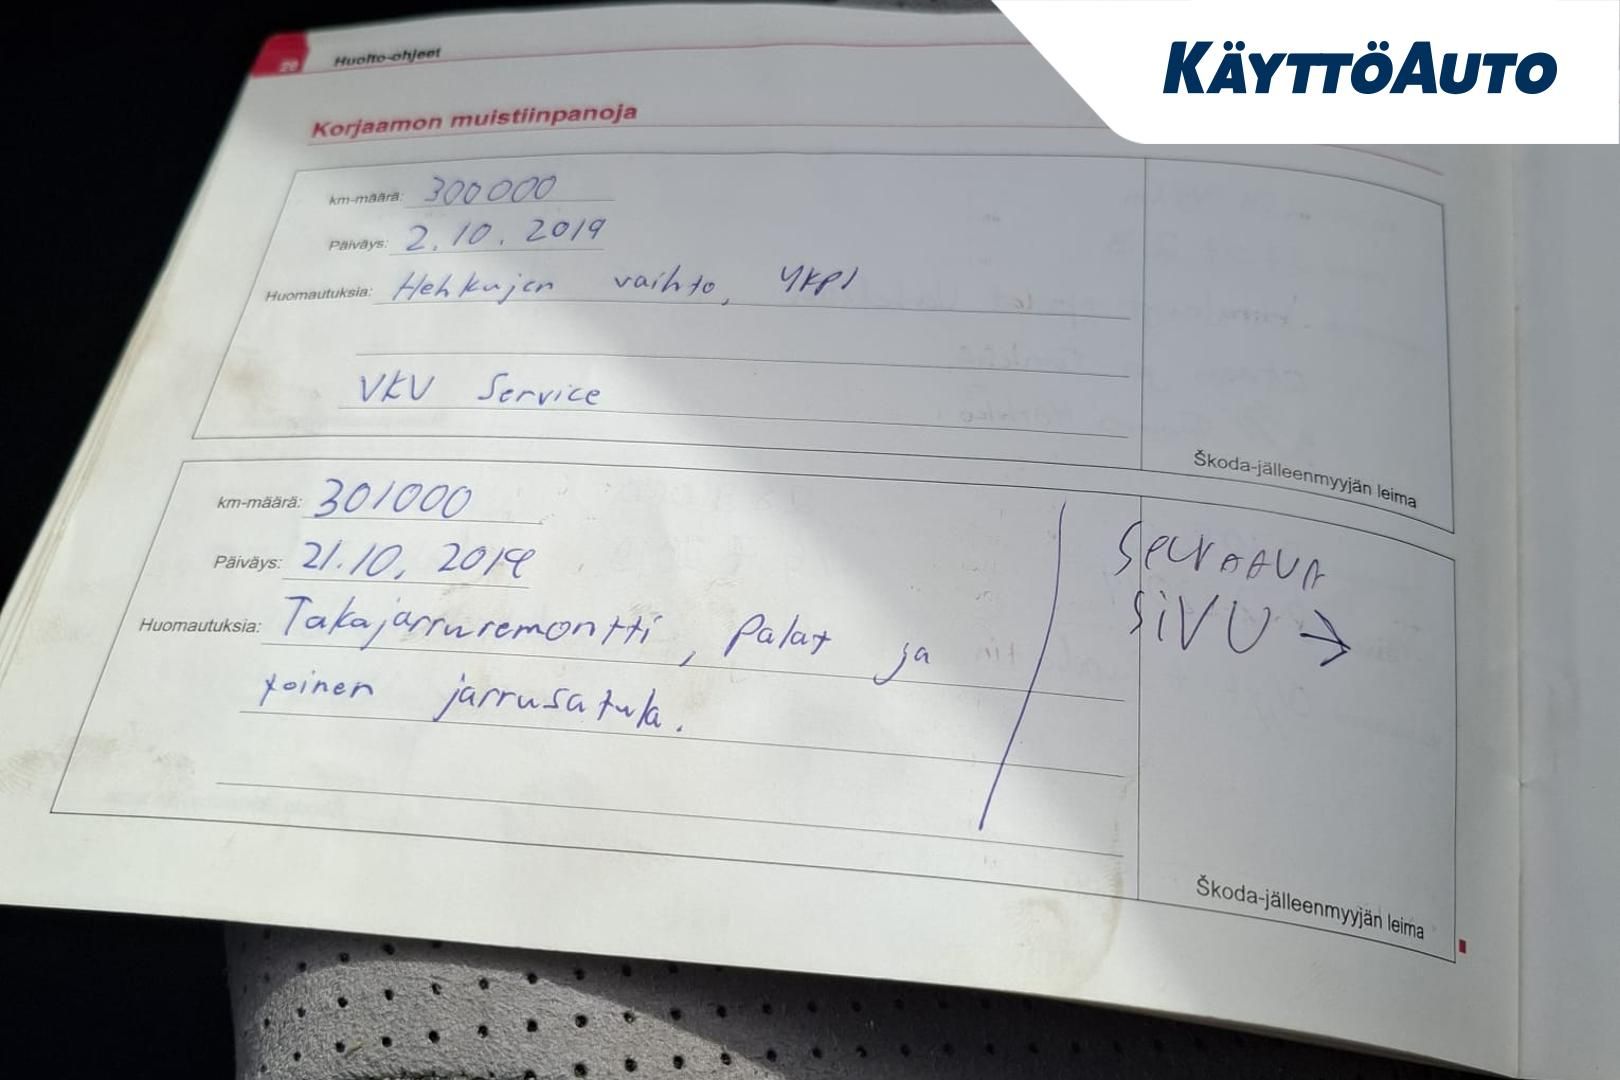 KÄYTTÖAUTO
28 Huolto-ohjeet
Korjaamon muistiinpanoja
km-määrä: 300000
Päiväys: 2.10.2019
Huomautuksia: Hehkujen vaihto, 4kpl
VKV Service
Škoda-jälleenmyyjän leima
km-määrä: 301000
Päiväys: 21.10.2019
Huomautuksia: Takajarruremontti, Palat ja
toinen jarrusatula.
SEURAAVA
SiVU →
Škoda-jälleenmyyjän leima